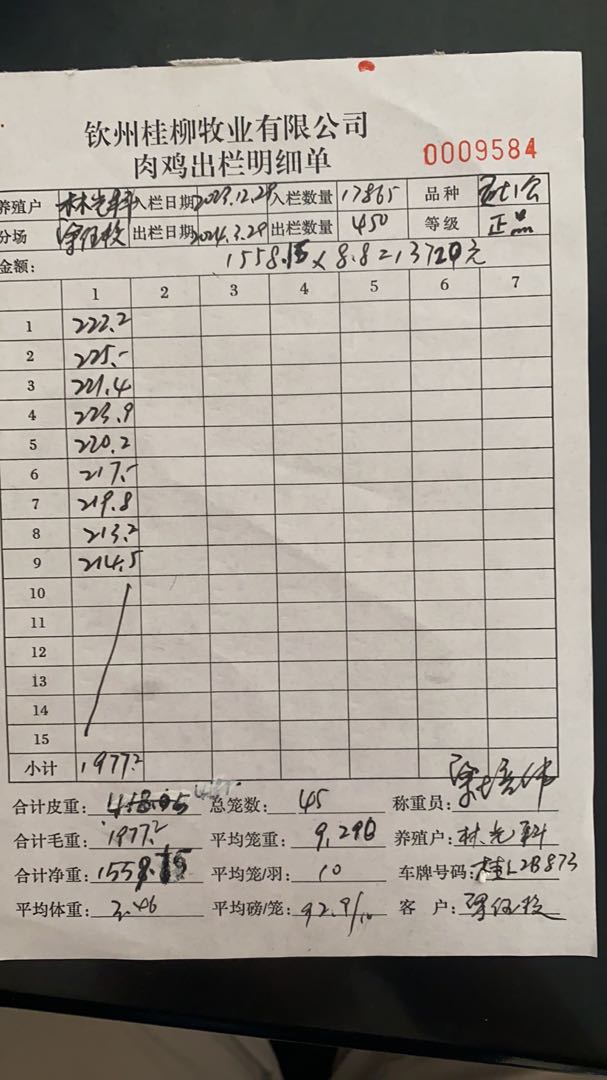 钦州桂柳牧业有限公司
肉鸡出栏明细单
0009584
养殖户 林光科 入栏日期 2023.12.29 入栏数量 17865 品种
分场 出栏日期 2024.3.29 出栏数量 450 等级 正品
金额: 1558.15 × 8.8 = 13720元
1 2 3 4 5 6 7
1 222.2
2 225.-
3 221.4
4 223.9
5 220.2
6 217.-
7 219.8
8 213.2
9 214.5
10
11
12
13
14
15
小计 1977.2
合计皮重: 总笼数: 45 称重员:
合计毛重: 1977.2 平均笼重: 9.290 养殖户: 林光科
合计净重: 平均笼/羽: 10 车牌号码: 桂L2B873
平均体重: 3.46 平均磅/笼: 92.9/10 客 户: